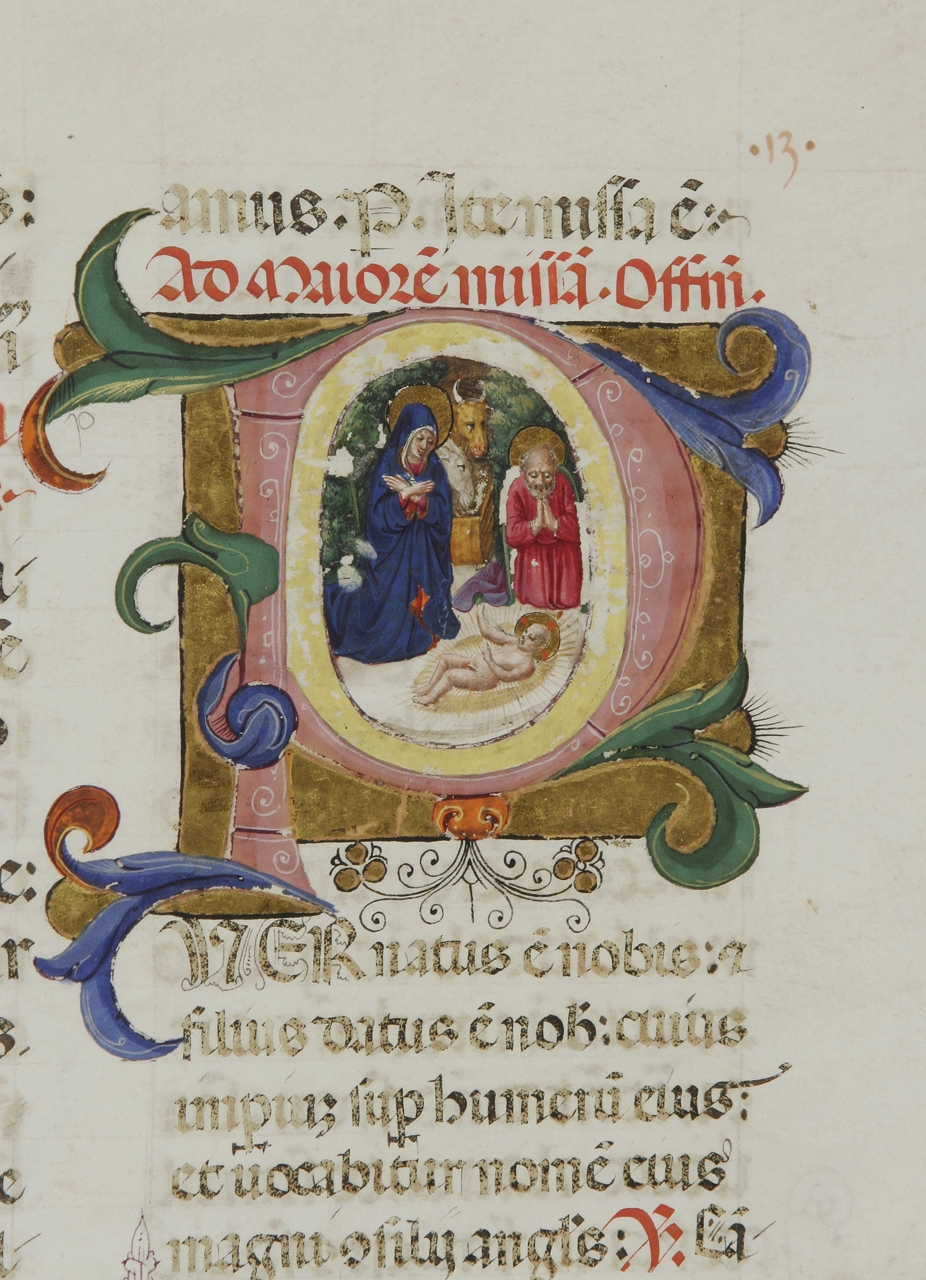 ·13·
amus. P. Ite missa ē:
Ad Maiorē missā. Offm̄.
P
NER natus ē nobis: ⁊
filius datus ē nob̄: cuius
impiuꝫ sup humerū eius:
et uocabitur nomē eius
magni ꝯsilij angl̄s: ℟.